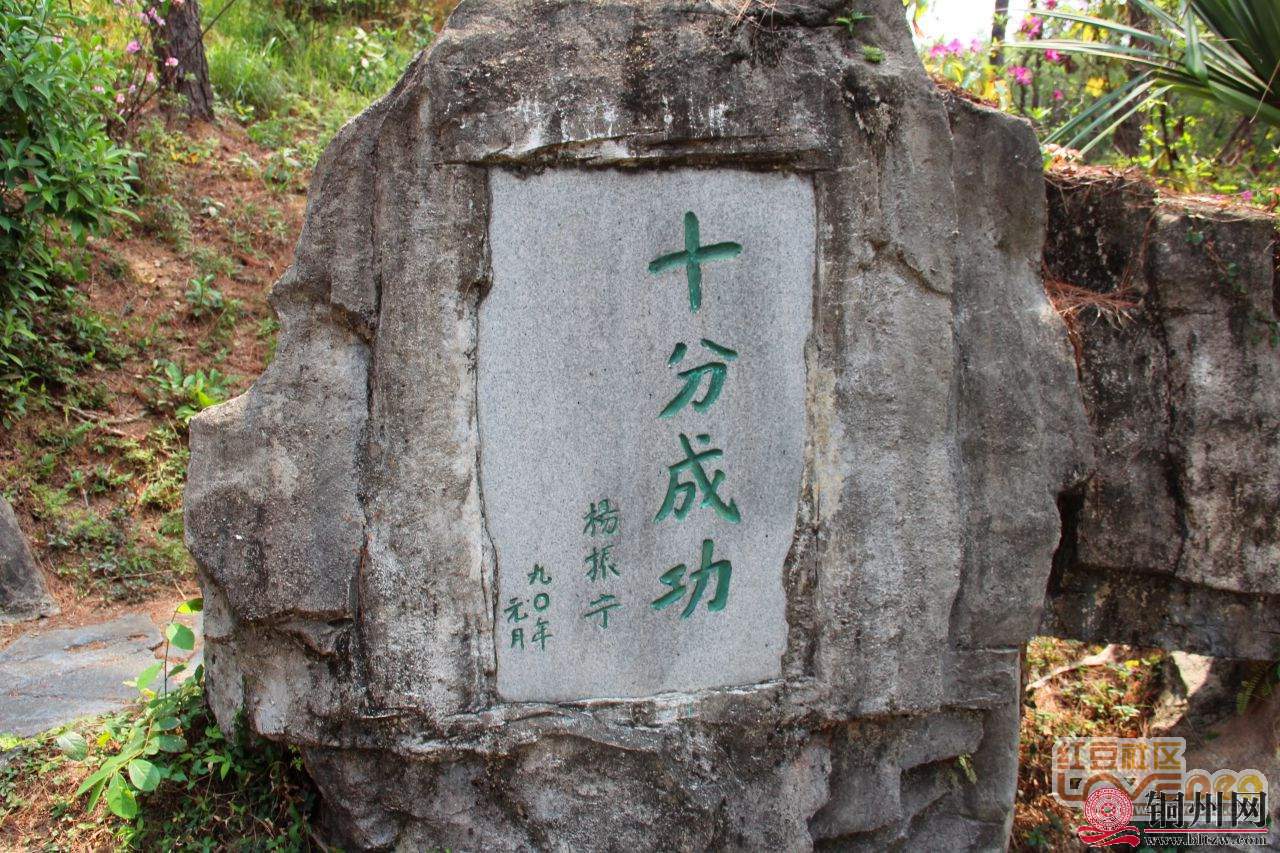 十分成功
楊振宁
九〇年
元月
红豆社区
铜州网
www.bltzw.com